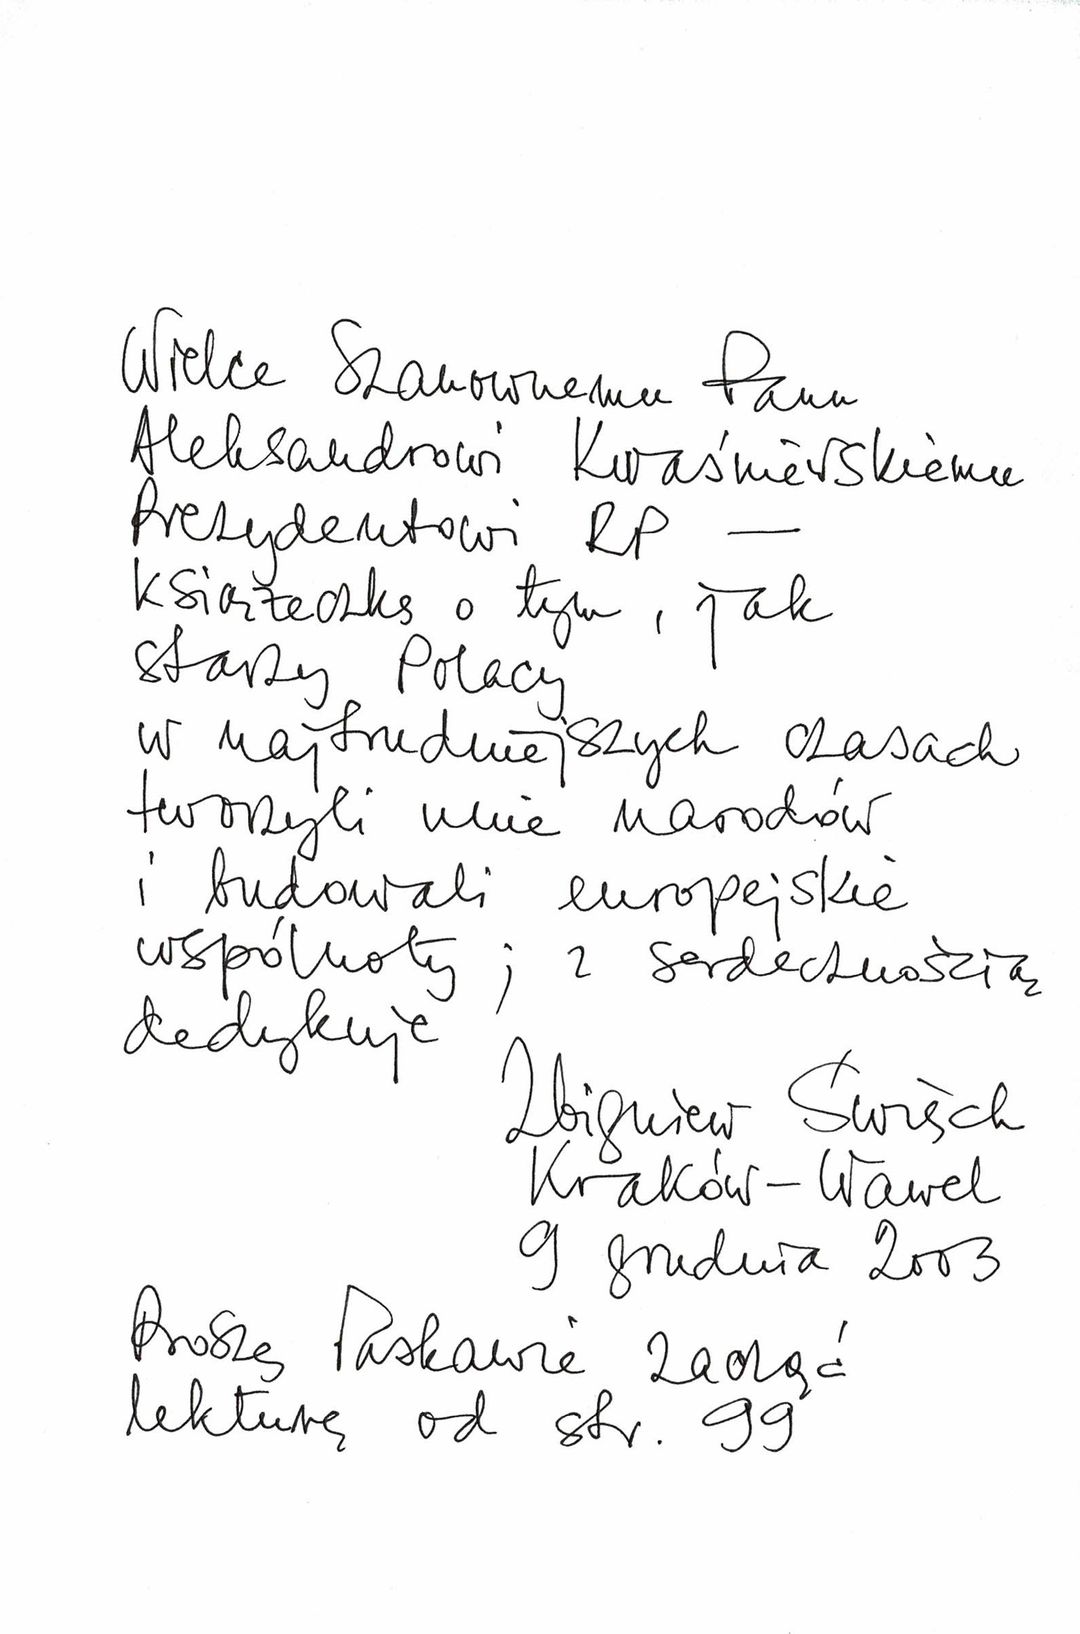 Wielce Szanownemu Panu
Aleksandrowi Kwaśniewskiemu
Prezydentowi RP —
książeczkę o tym, jak
starzy Polacy
w najtrudniejszych czasach
tworzyli unie narodów
i budowali europejskie
wspólnoty; z serdecznością
dedykuję
Zbigniew Święch
Kraków – Wawel
9 grudnia 2003
Proszę Łaskawie zacząć
lekturę od str. 99